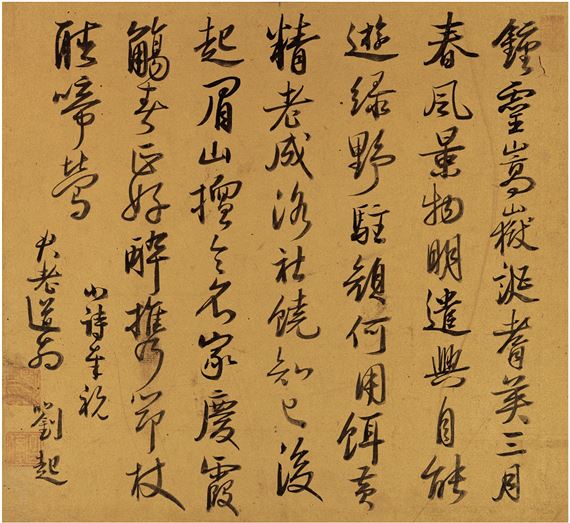 鍾靈嵩嶽誕耆英三月
春風景物明遣興自能
遊綠野駐顏何用餌黃
精老成洛社饒知己後
起眉山擅令名家慶霞
觴春正好醉攜筇杖
聽啼鶯
小詩奉祝
老道翁 劉起